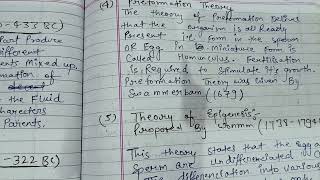 0-433 BC)
Part Produce
Different
ents mixed up
mation of
the Fluid
characters
Parents.
-322 BC)
(4) Preformation Theory
The theory of Preformation Belives
that the organism is already
Present in Form in the sperm
OR Egg in miniature Form is
Called Homunculus. Fertilisation
is Required to stimulate it's growth.
Preformation Theory was Given By
Swammerdam (1679)
(5) Theory of Epigenesis:-
Proposed By
This theory states that the egg a
sperm are undifferentiated
The differenciation into various
only